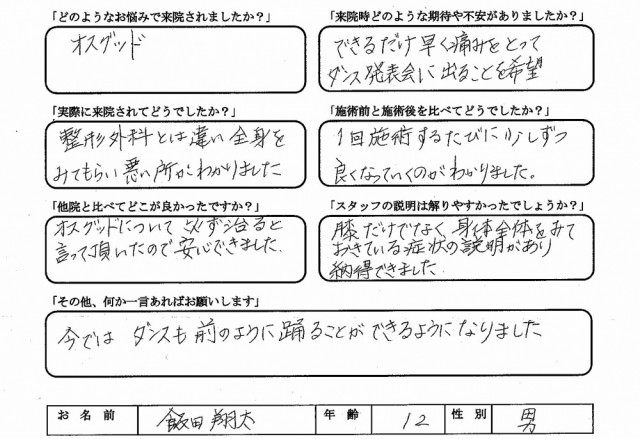 「どのようなお悩みで来院されましたか？」
オスグッド
「来院時どのような期待や不安がありましたか？」
できるだけ早く痛みをとって
ダンス発表会に出ることを希望
「実際に来院されてどうでしたか？」
整形外科とは違い全身を
みてもらい悪い所がわかりました
「施術前と施術後を比べてどうでしたか？」
1回施術するたびに少しずつ
良くなっていくのがわかりました。
「他院と比べてどこが良かったですか？」
オスグッドについて必ず治ると
言って頂いたので安心できました.
「スタッフの説明は解りやすかったでしょうか？」
膝だけでなく身体全体をみて
おきている症状の説明があり
納得できました.
「その他、何か一言あればお願いします」
今では ダンスも前のように踊ることができるようになりました
お名前 飯田翔太 年齢 12 性別 男